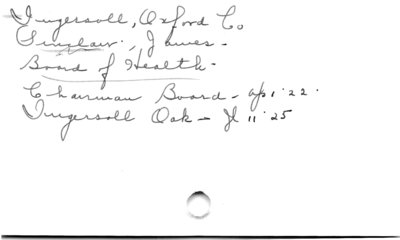 Ingersoll, Oxford Co
Sinclair, James.
Board of Health.
Chairman Board - ap 1 '22.
Ingersoll Oak - Jl 11 '25